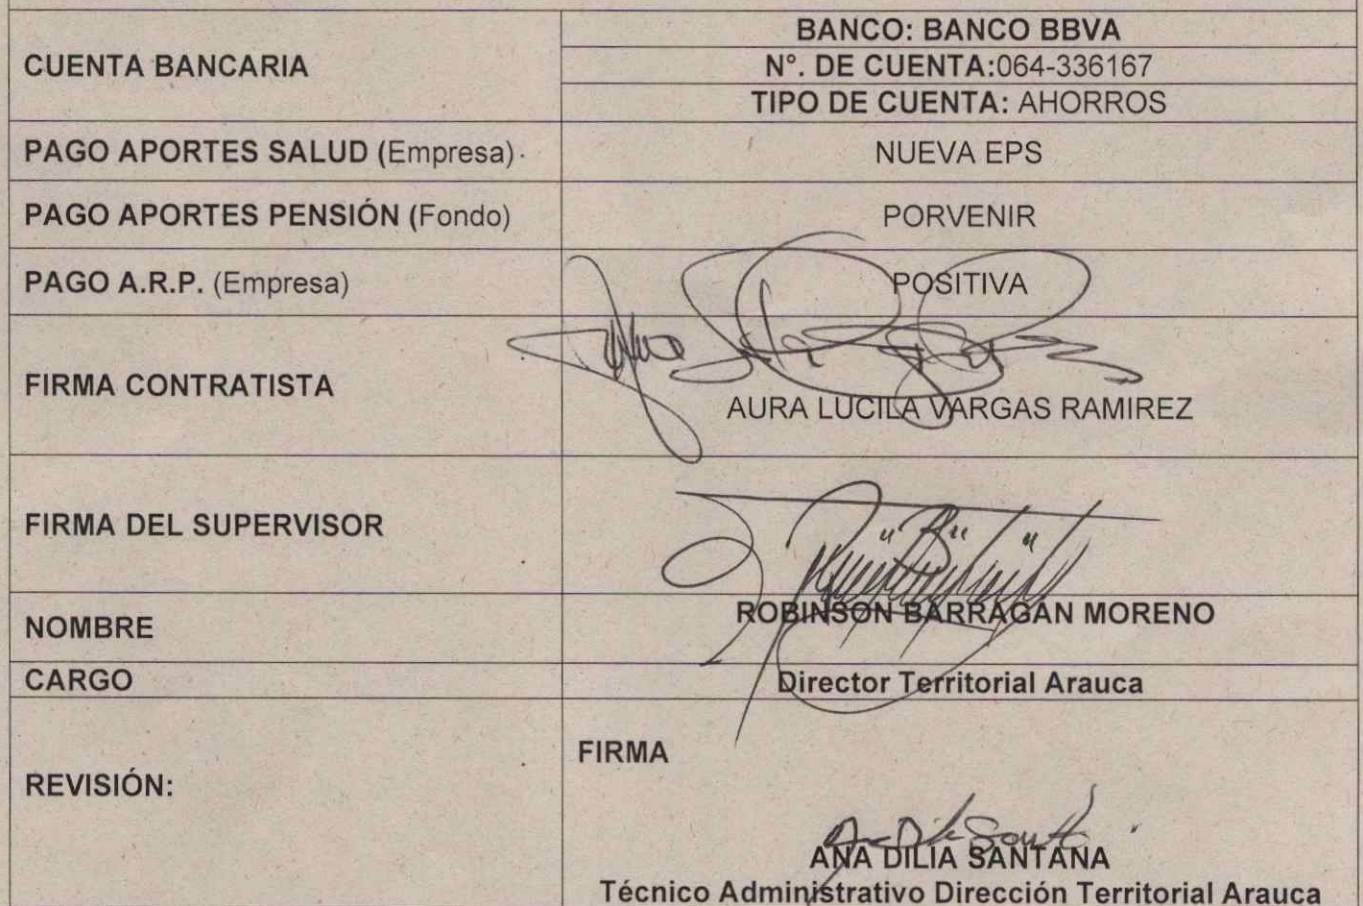 CUENTA BANCARIA
BANCO: BANCO BBVA
N°. DE CUENTA:064-336167
TIPO DE CUENTA: AHORROS
PAGO APORTES SALUD (Empresa)
NUEVA EPS
PAGO APORTES PENSIÓN (Fondo)
PORVENIR
PAGO A.R.P. (Empresa)
POSITIVA
FIRMA CONTRATISTA
AURA LUCILA VARGAS RAMIREZ
FIRMA DEL SUPERVISOR
NOMBRE
ROBINSON BARRAGÁN MORENO
CARGO
Director Territorial Arauca
REVISIÓN:
FIRMA
ANA DILIA SANTANA
Técnico Administrativo Dirección Territorial Arauca